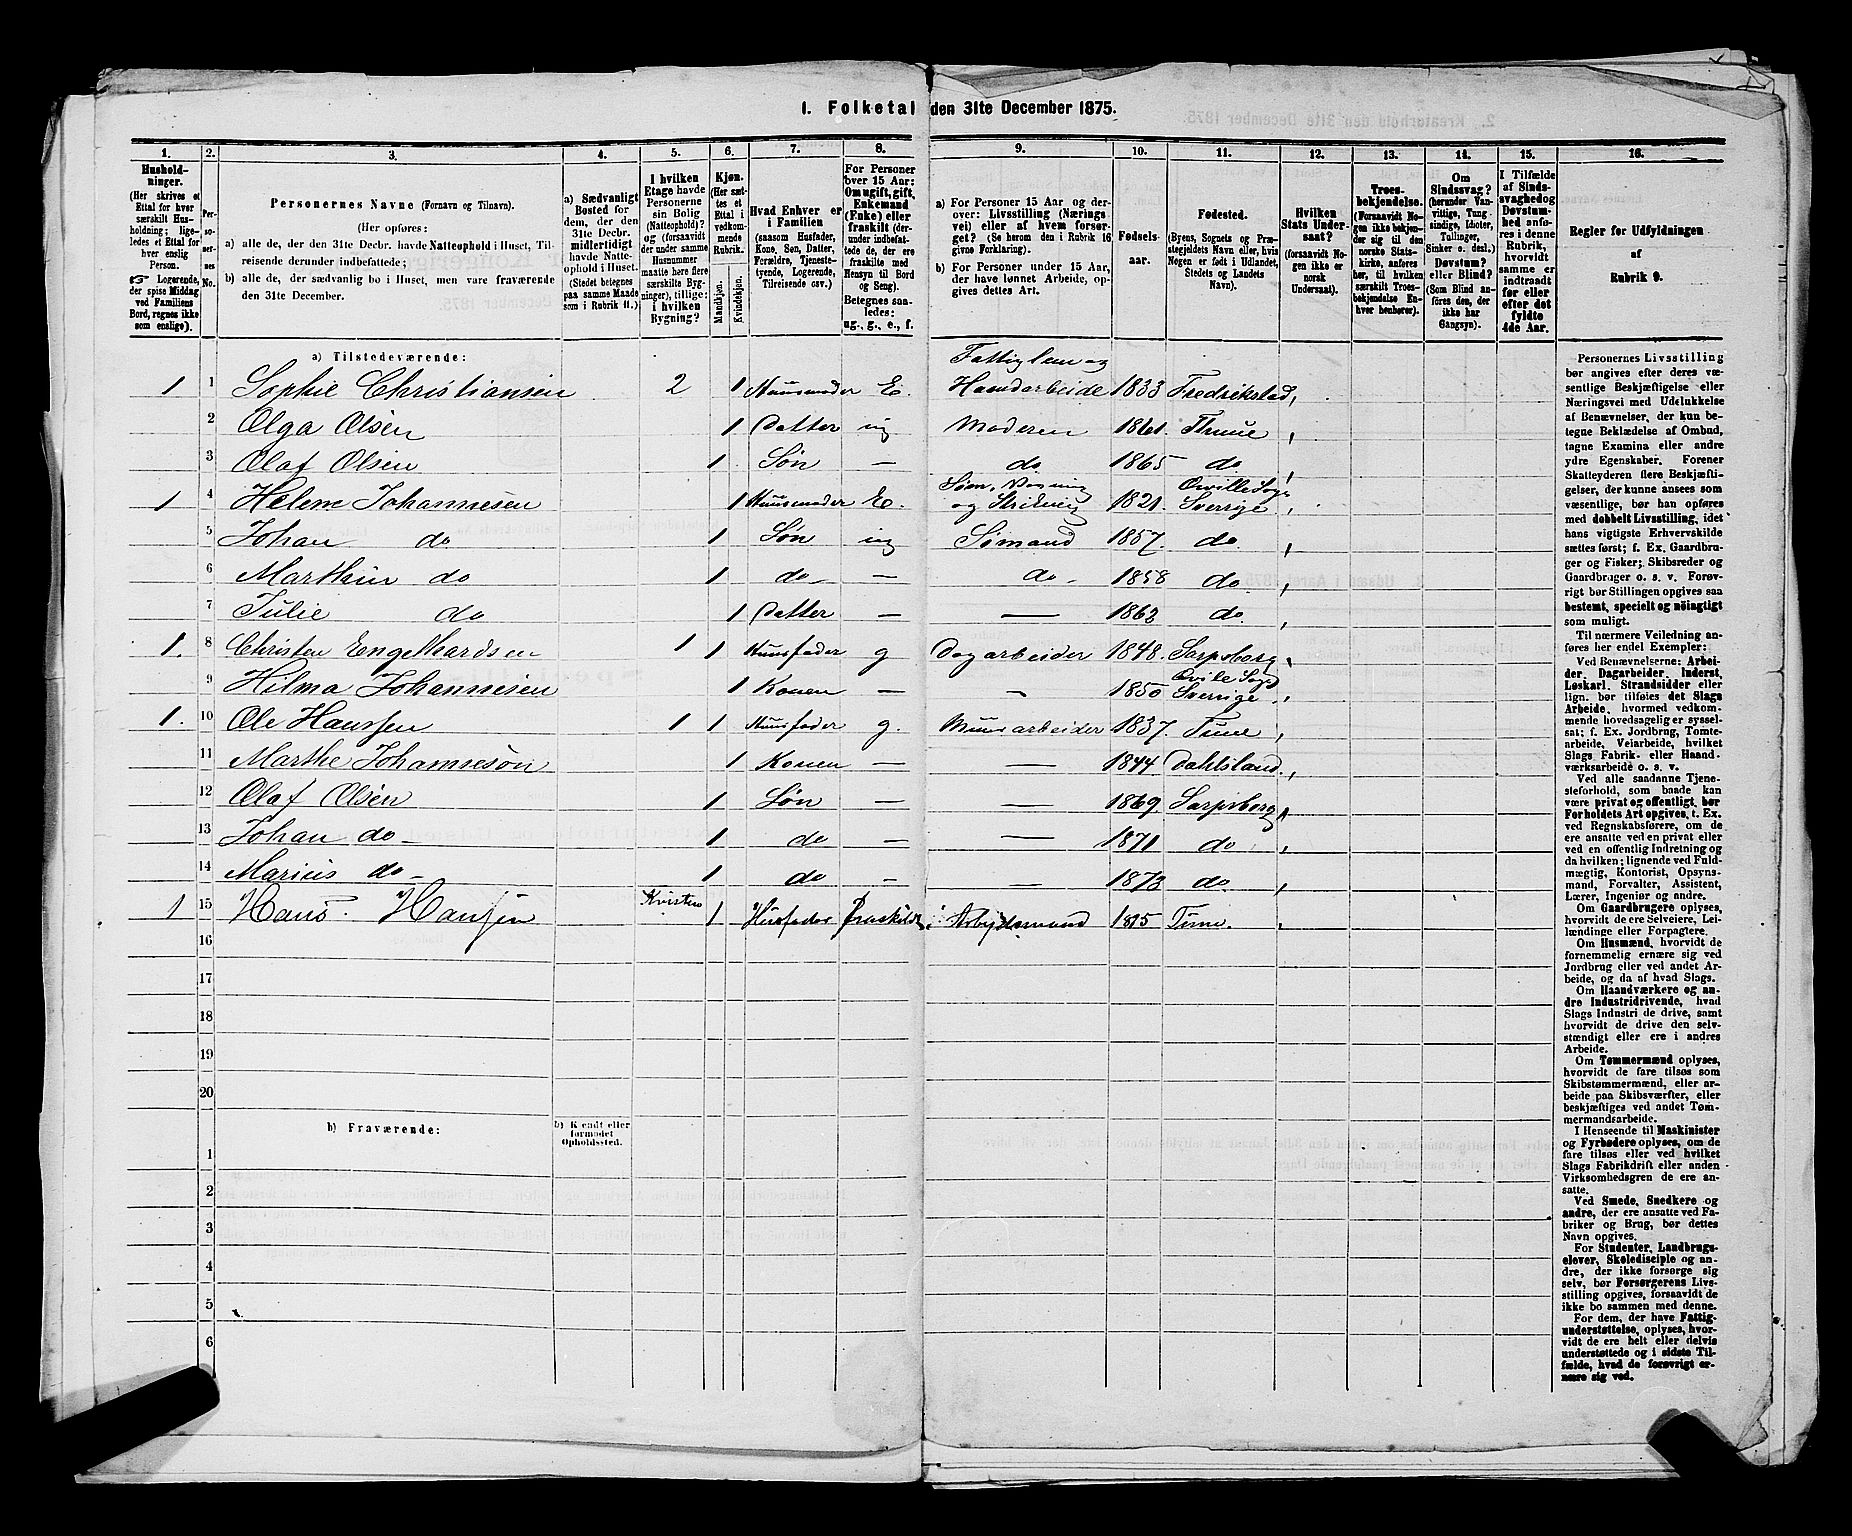 1. Folketal den 31te December 1875.
1. 2. 3. 4. 5. 6. 7. 8. 9. 10. 11. 12. 13. 14. 15. 16.
Hushold-
ninger.
(Her skrives et
Ettal for hver
særskilt Hus-
holdning; lige-
ledes et Ettal for
hver enslig
Person.
Logerende,
der spise Middag
ved Familiens
Bord, regnes ikke
som enslige).
Per-
so-
ner-
nes
No.
Personernes Navne (Fornavn og Tilnavn).
(Her opføres:
a) alle de, der den 31te Decbr. havde Natteophold i Huset, Til-
reisende derunder indbefattede;
b) alle de, der sædvanlig bo i Huset, men vare fraværende
den 31te December.
a) Sædvanligt
Bosted for
dem, der den
31te Decbr.
midlertidigt
havde Natte-
ophold i Huset.
(Stedet betegnes
paa samme Maade
som i Rubrik 11.)
I hvilken
Etage havde
Personerne
sin Bolig
(Natteophold)?
og (forsaavidt
der under samme
Husnummer
maatte høre flere
særskilte Byg-
ninger), tillige:
i hvilken
Bygning?
Kjøn.
(Her sæt-
tes et
Ettal i
vedkom-
mende
Rubrik.
Mandkjøn.
Kvindekjøn.
Hvad Enhver er
i Familien
(saasom Husfader,
Kone, Søn, Datter,
Forældre, Tjeneste-
tyende, Logerende,
Tilreisende osv.)
For Personer
over 15 Aar:
Om ugift, gift,
Enkemand
(Enke) eller
fraskilt (der-
under indbefat-
tede de, der ere
fraskilte med
Hensyn til Bord
og Seng).
Betegnes saa-
ledes:
ug., g., e., f.
a) For Personer 15 Aar og der-
over: Livsstilling (Nærings
vei) eller af hvem forsør-
get? (Se herom den i Rubrik 16
givne Forklaring).
b) For Personer under 15 Aar,
der have lønnet Arbeide, op-
gives dettes Art.
Fødsels-
aar.
Fødested.
(Byens, Sognets og Præ-
stegjeldets Navn eller, hvis
Nogen er født i Udlandet,
Stedets og Landets
Navn).
Hvilken
Stats Under-
saat?
(forsaavidt No-
gen ikke er
norsk
Undersaat).
Troes-
bekjendelse.
(Forsaavidt No-
gen ikke bekjen-
der sig til den
norske Stats-
kirke, anføres
her, til hvilken
særskilt Troes-
bekjendelse En-
hver henhører).
Om
Sindssvag?
(herunder Van-
vittige, Tung-
sindige, Idioter,
Tullinger,
Sinker o. desl.)
Døvstum?
eller Blind?
(Som Blind an-
føres den, der
ikke har
Gangsyn).
I Tilfælde
af Sinds-
svaghed og
Døvstum-
hed anfø-
res i denne
Rubrik,
hvorvidt
samme er
indtraadt
før eller
efter det
fyldte
4de Aar.
Regler for Udfyldningen
af
Rubrik 9.
a) Tilstedeværende:
1 1 Sophie Christiansen 2 1 Huusmoder E. Fattiglem og Haandarbeide 1833 Fredrikstad
2 Olga Olsen 1 Datter ug Moderen 1861 Thune
3 Olaf Olsen 1 Søn — do 1865 do
1 4 Helene Johannesen 1 Huusmoder E. Søm, og Strikning 1821 Sverrige
5 Johan do 1 Søn ug Sømand 1857 do
6 Marthin do 1 do — do 1858 do
7 Julie do 1 Datter — — 1863 do
1. 8 Christen Engelhardsen 1 1 Huusfader g Dagarbeider 1848 Sarpsborg
9 Hilma Johannesen 1 Konen — — 1850 Sverrige
1. 10 Ole Hansen 1 1 Huusfader g. Muurarbeider 1837 Tune
11 Marthe Johannesøn 1 Konen — — 1844 Dahlsland
12 Olaf Olsen 1 Søn — — 1869 Sarpsborg
13 Johan do 1 do — — 1871 do
14 Marius do 1 do — — 1873 do
1 15 Hans Hansen Kvisten 1 Husfader fraskildt Arbeidsmand 1815 Tune
16
17
18
19
20
b) Fraværende:
b) Kjendt eller
formodet
Opholdssted.
1
2
3
4
5
6
Personernes Livsstilling
bør angives efter deres væ-
sentlige Beskjæftigelse eller
Næringsvei med Udelukkelse
af Benævnelser, der kun be-
tegne Beklædelse af Ombud,
tagne Examina eller andre
ydre Egenskaber. Forener
Skatteyderen flere Beskjæfti-
gelser, der kunne ansees som
væsentlige, bør han opføres
med dobbelt Livsstilling, idet
hans vigtigste Erhvervskilde
sættes først; f. Ex. Gaardbru-
ger og Fisker; Skibsreder og
Gaardbruger o. s. v. Forøv-
rigt bør Stillingen opgives saa
bestemt, specielt og nøiagtigt
som muligt.
Til nærmere Veiledning an-
føres her endel Exempler:
Ved Benævnelserne: Arbei-
der, Dagarbeider, Inderst,
Løskarl, Strandsidder eller
lign. bør tilføies det Slags
Arbeide, hvormed vedkom-
mende hovedsagelig er syssel-
sat; f. Ex. Jordbrug, Tomte-
arbeide, Veiarbeide, hvilket
Slags Fabrik- eller Haand-
værksarbeide o. s. v.
Ved alle saadanne Tjene-
steforhold, som baade kan
være privat og offentligt, bør
Forholdets Art opgives, t. Ex.
ved Regnskabsførere, om de
ere ansatte ved en privat eller
ved en offentlig Indretning og
da hvilken; lignende ved Fuld-
mægtig, Kontorist, Opsyns-
mand, Forvalter, Assistent,
Lærer, Ingeniør og andre.
Om Gaardbrugere oplyses,
hvorvidt de ere Selveiere, Lei-
lændinge eller Forpagtere.
Om Husmænd, hvorvidt de
fornemmelig ernære sig ved
Jordbrug eller ved andet Ar-
beide, og da af hvad Slags.
Om Haandværkere og an-
dre Industridrivende, hvad
Slags Industri de drive, samt
hvorvidt de drive den selv-
stændigt eller ere i andres
Arbeide.
Om Tømmermænd oplyses,
hvorvidt de fare tilsøs som
Skibstømmermænd, eller ar-
beide paa Skibsværfter, eller
beskjæftiges ved andet Tøm-
mermandsarbeide.
I Henseende til Maskinister
og Fyrbødere oplyses, om de
fare tilsøs eller ved hvilket
Slags Fabrikdrift eller anden
Virksomhedsgren de ere an-
satte.
Ved Smede, Snedkere og
andre, der ere ansatte ved Fa-
briker og Brug, bør dettes
Navn opgives.
For Studenter, Landbrugs-
elever, Skoledisciple og an-
dre, der ikke forsørge sig
selv, bør Forsørgerens Livs-
stilling opgives, forsaavidt de
ikke bo sammen med denne.
For dem, der have Fattig-
understøttelse, oplyses, hvor-
vidt de ere helt eller delvis
understøttede og i sidste Til-
fælde, hvad de forøvrigt er-
nære sig ved.